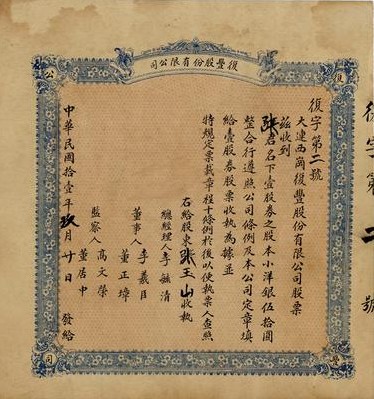 復豐股份有限公司
復
公
豐
司
復字第二號
大連西崗復豐股份有限公司股票
茲收到
張君名下壹股券之股本小洋銀伍拾圓
整合行遵照公司條例及本公司定章填
給壹股券股票收執為據並
特規定票載章程條例於後以便執票人查照
右給股東張玉山收執
總經理人李毓清
董事人李義臣
董正璋
監察人高文榮
董居中
中華民國拾壹年玖月廿日發給
復字第二號